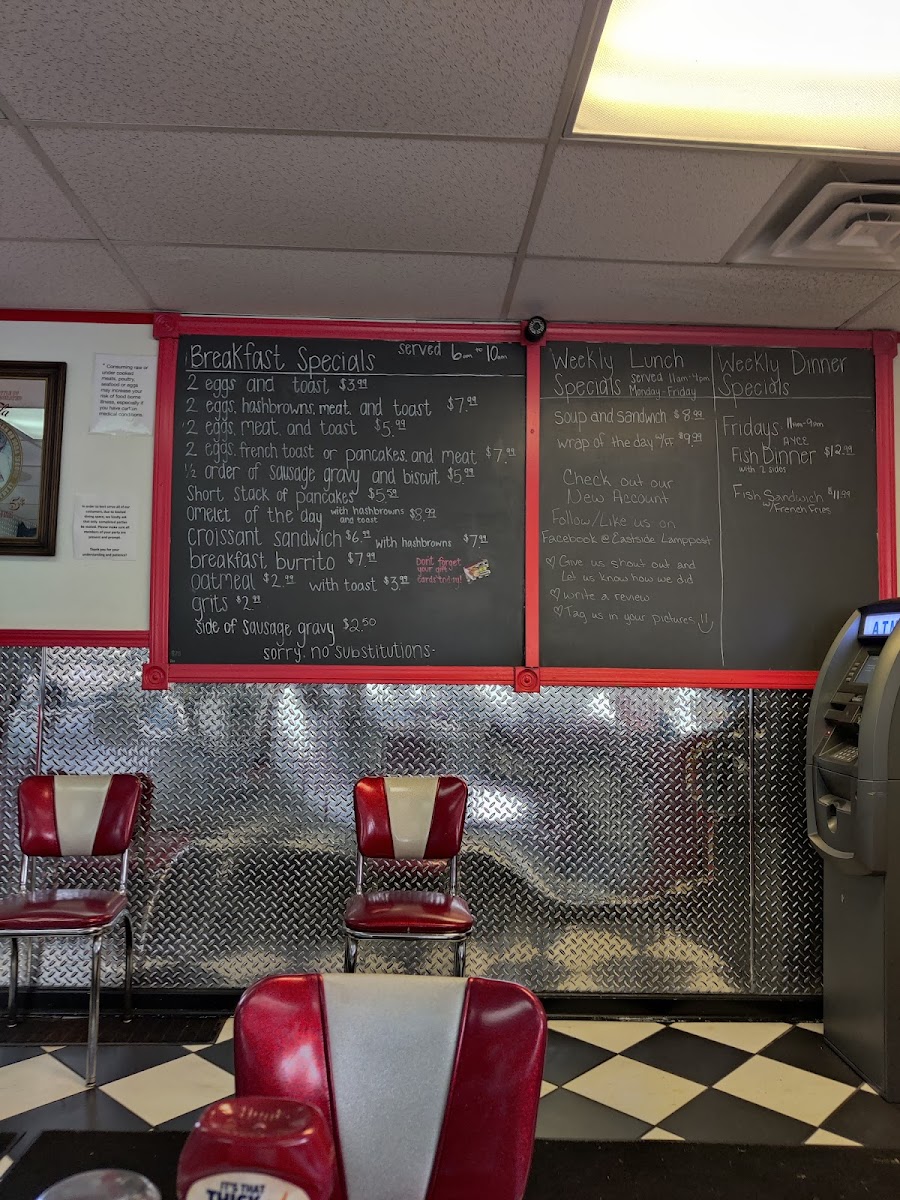 * Consuming raw or
under cooked
meats, poultry,
seafood or eggs
may increase your
risk of food borne
illness, especially if
you have certain
medical conditions.
Thank you for your
understanding and patience!
Breakfast Specials served 6am to 10am
2 eggs and toast $3.99
2 eggs, hashbrowns, meat, and toast $7.99
2 eggs, meat, and toast $5.99
2 eggs, french toast or pancakes, and meat $7.99
1/2 order of sausage gravy and biscuit $5.99
Short stack of pancakes $5.59
omelet of the day with hashbrowns and toast $8.99
croissant sandwich $6.99 with hashbrowns $7.99
breakfast burrito $7.99
Dont forget
your gift
cards today!
oatmeal $2.99 with toast $3.99
grits $2.99
side of sausage gravy $2.50
sorry, no substitutions.
Weekly Lunch
Specials served 11am-4pm
Monday-Friday
soup and sandwich $8.99
wrap of the day w/FF $9.99
Check out our
New Account
Follow/Like us on
Facebook @Eastside Lamppost
♡ Give us shout out and
Let us know how we did
♡ write a review
♡ Tag us in your pictures!!
Weekly Dinner
Specials
Fridays 11am-9pm
AYCE
Fish Dinner $12.99
with 2 sides
Fish Sandwich $11.99
w/French Fries
ATM
IT'S THAT
THICK